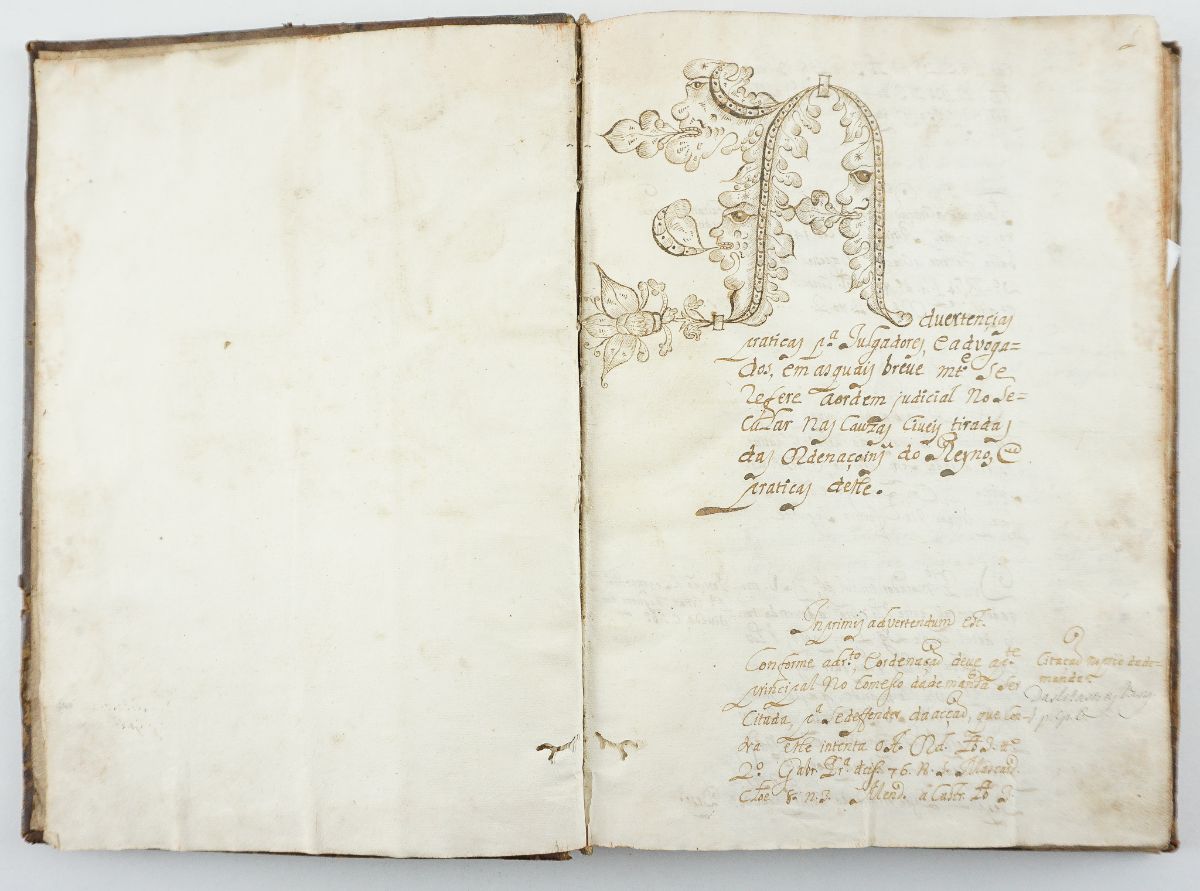 Advertencias
praticas p.ª Julgadores, e advoga=
dos, em as quais breve mt.e se
refere a ordem judicial no se=
cular nas cauzas civeis tiradas
das Ordenaçoins do Reyno, e
praticas deste.
Inprimis advertendum est.
Conforme a dr.to, e ordenação deve a p.te
principal no comeso da demanda ser
citada, p.ª se deffender da acção, que con-
tra elle intenta o A. Ord. L.o 3. 
Gabr. Pr.ª decis. 76. n. 
 8. n. 3. Mend. a Castr. L.o 3.
Citação no prc.o da de=
manda.